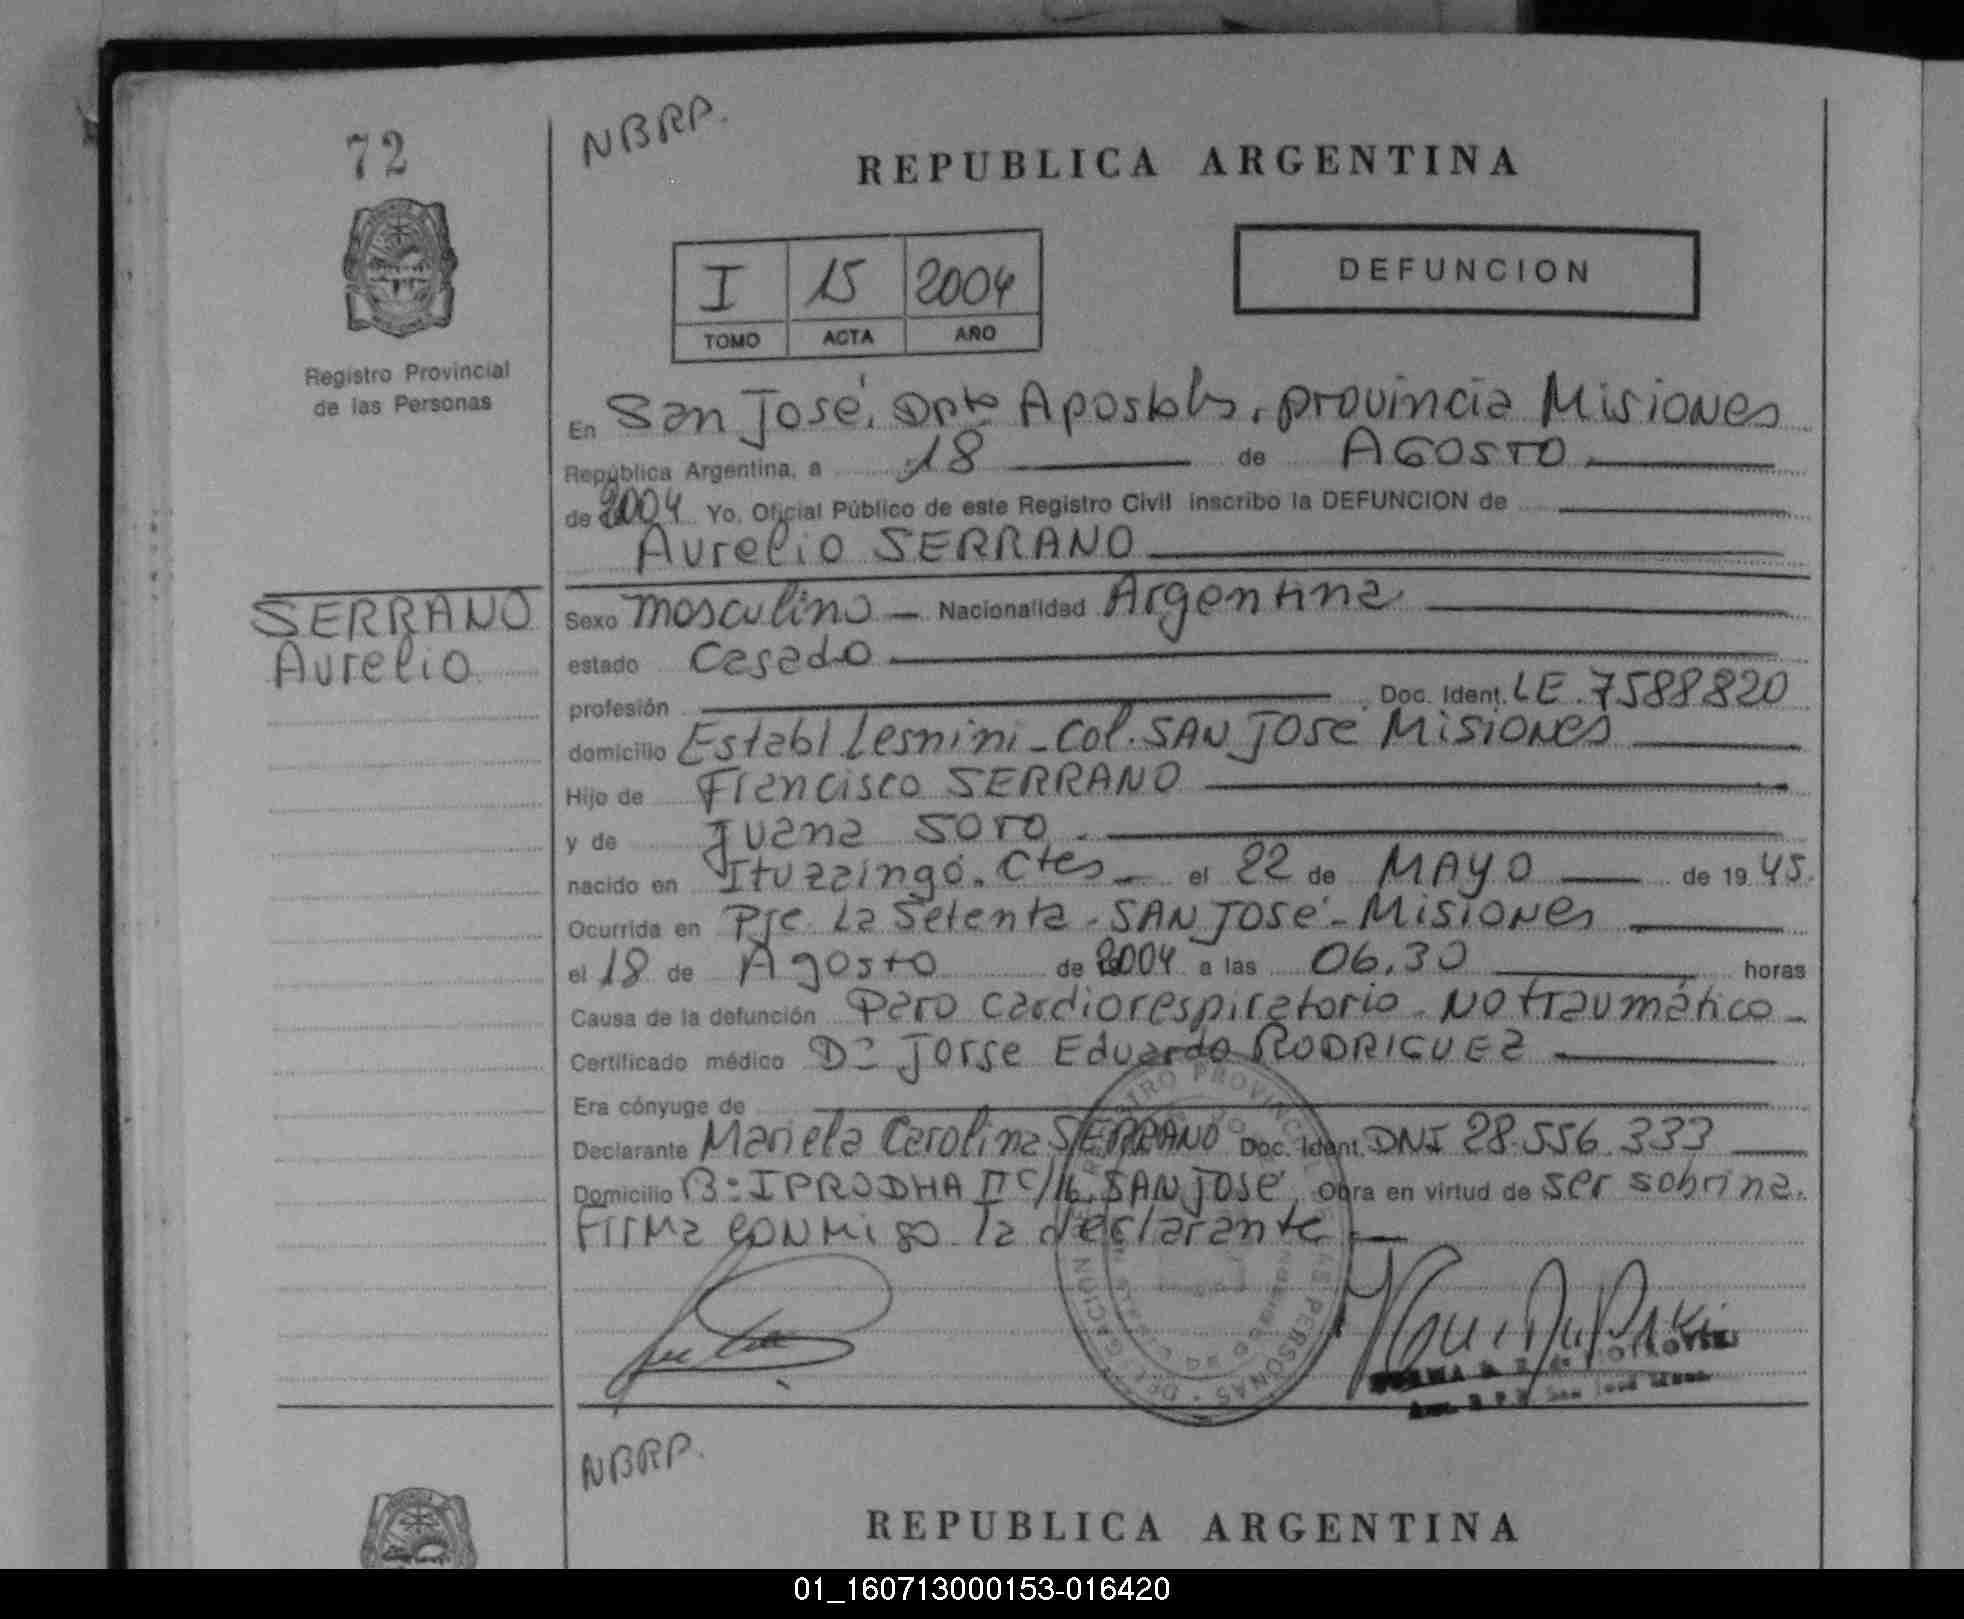 72
NBRP.
REPUBLICA ARGENTINA
I 15 2004
TOMO ACTA AÑO
DEFUNCION
Registro Provincial
de las Personas
En San José, Dpto Apostoles, provincia Misiones
República Argentina, a 18 de AGOSTO
de 2004 Yo, Oficial Público de este Registro Civil inscribo la DEFUNCION de
Aurelio SERRANO
SERRANO
Aurelio
Sexo masculino Nacionalidad Argentina
estado Casado
profesión Doc. Ident. LE. 7588820
domicilio Establ. Lesnini - Col. SAN JOSE Misiones
Hijo de Francisco SERRANO
y de Juana SOTO
nacido en Ituzaingó. Ctes - el 22 de MAYO de 19 45.
Ocurrida en Pje. La Setenta - SAN JOSE - Misiones
el 18 de Agosto de 2004 a las 06,30 horas
Causa de la defunción Paro cardiorespiratorio - No traumático -
Certificado médico Dr Jorge Eduardo RODRIGUEZ
Era cónyuge de
Declarante Mariela Carolina SERRANO Doc. Ident. DNI 28.556.333
Domicilio B: IPRODHA II C/16. SAN JOSE Obra en virtud de ser sobrina.
Firma conmigo la declarante
REGISTRO PROVINCIAL DE LAS PERSONAS - DELEGACION
NBRP.
REPUBLICA ARGENTINA
01_160713000153-016420